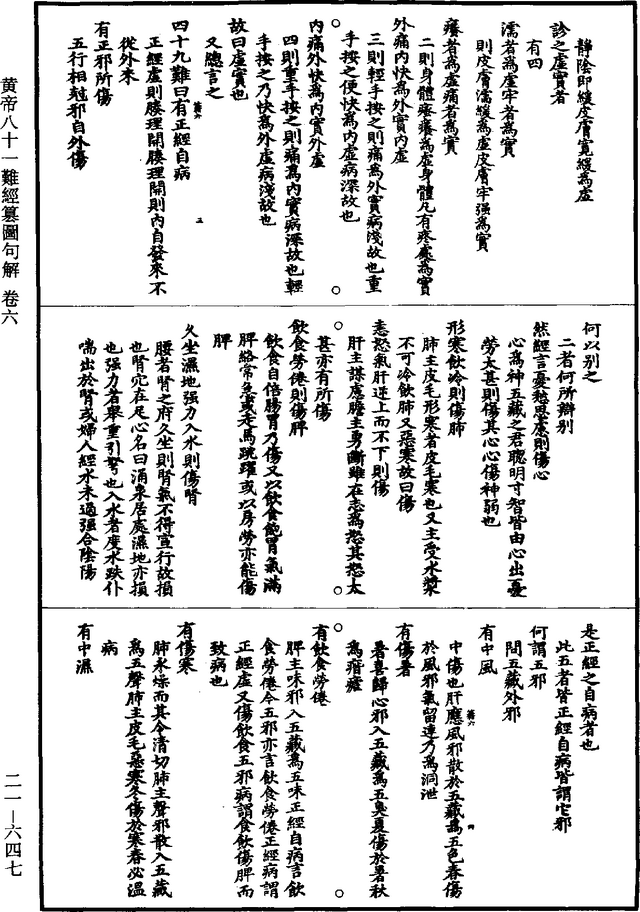 靜陰即緩皮膚寬緩為虛
診之虛實者
有四
濡者為虛牢者為實
則皮膚濡緩為虛皮膚牢强為實
癢者為虛痛者為實
二則身體癢癢為虛身體凡有疼處為實
外痛內快為外實內虛
三則輕手按之則痛為外實病淺故也重
手按之便快為內虛病深故也
內痛外快為內實外虛
四則重手按之則痛為內實病深故也輕
手按之乃快為外虛病淺故也
故曰虛實也
又總言之
四十九難曰有正經自病
正經虛則腠理開腠理開則內自發來不
從外來
有正邪所傷
五行相尅邪自外傷
何以別之
二者何所辯別
然經言憂愁思慮則傷心
心為神五藏之君聰明才智皆由心出憂
勞太甚則傷其心心傷神弱也
形寒飲冷則傷肺
肺主皮毛形寒者皮毛寒也又主受水漿
不可冷飲肺又惡寒故曰傷
恚怒氣肝逆上而不下則傷
肝主謀慮膽主勇斷雖在志為怒其怒太
甚亦有所傷
飲食勞倦則傷脾
飲食自倍腸胃乃傷又以飲食飽胃氣滿
脾絡常急或走馬跳躍或以房勞亦能傷
脾
久坐濕地强力入水則傷腎
腰者腎之府久坐則腎氣不得宣行故損
也腎穴在足心名曰涌泉居處濕地亦損
也强力者舉重引弩也入水者度水跌仆
喘出於腎或婦人經水未過强合陰陽
是正經之自病者也
此五者皆正經自病皆謂它邪
何謂五邪
問五藏外邪
有中風
中傷也肝應風邪散於五藏為五色春傷
於風邪氣留連乃為洞泄
有傷暑
暑喜歸心邪入五藏為五臭夏傷於暑秋
為痎瘧
有飲食勞倦
脾主味邪入五藏為五味正經自病言飲
食勞倦今五邪亦言飲食勞倦正經病謂
正經虛又傷飲食五邪病謂食飲傷脾而
致病也
有傷寒
肺永燥而其令清切肺主聲邪散入五藏
為五聲肺主皮毛惡寒冬傷於寒春必溫
病
有中濕
黄帝八十一難經纂圖句解 卷六
二一—六四七